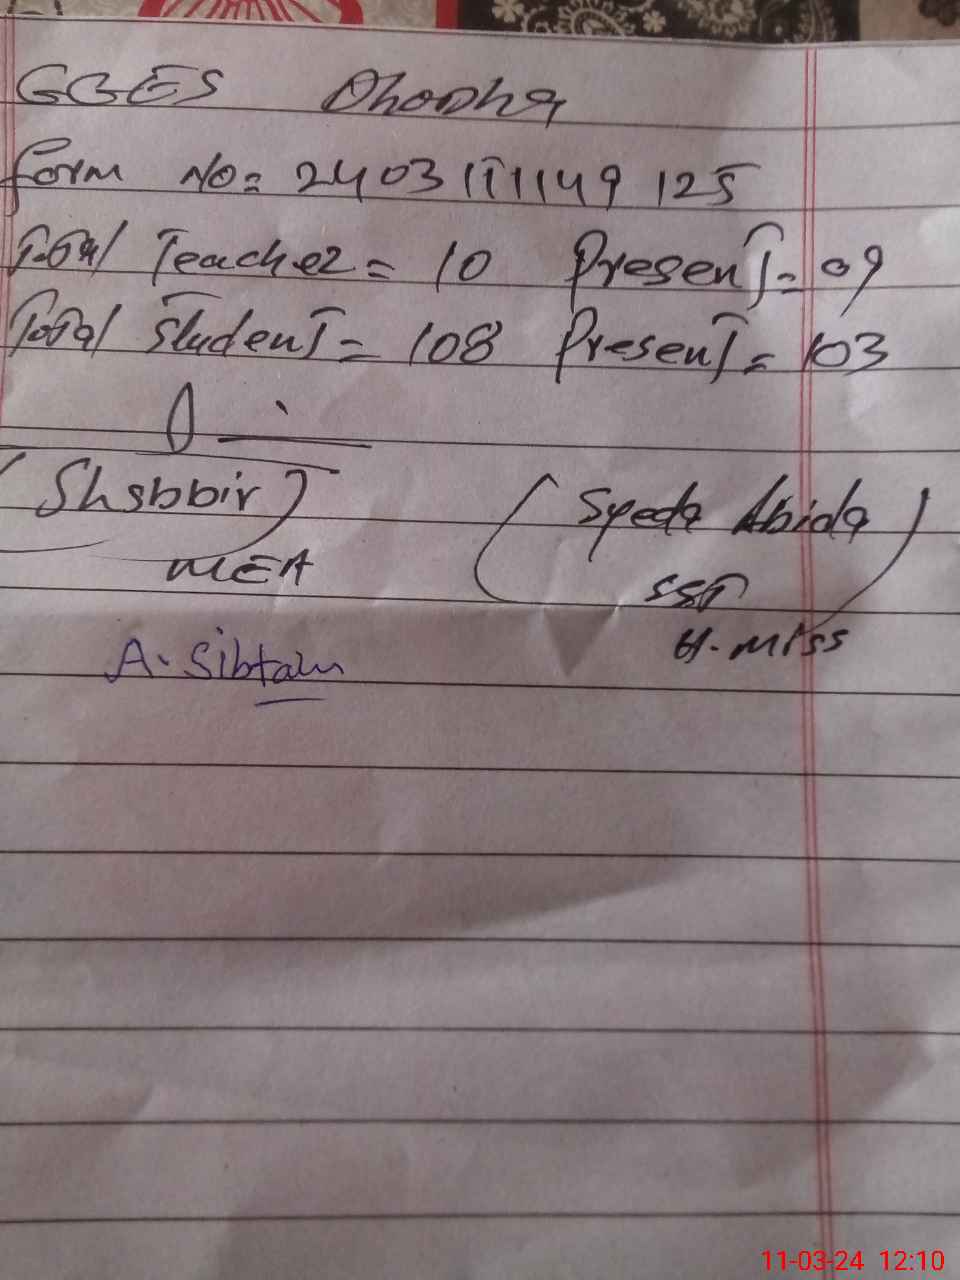 GGES Dhodha
Form No= 2403111149125
Total Teacher = 10 Present = 09
Total Student = 108 Present = 103
(Shabbir) (Syeda Abida)
MEA SST
H. Miss
A. Sibtain
11-03-24 12:10